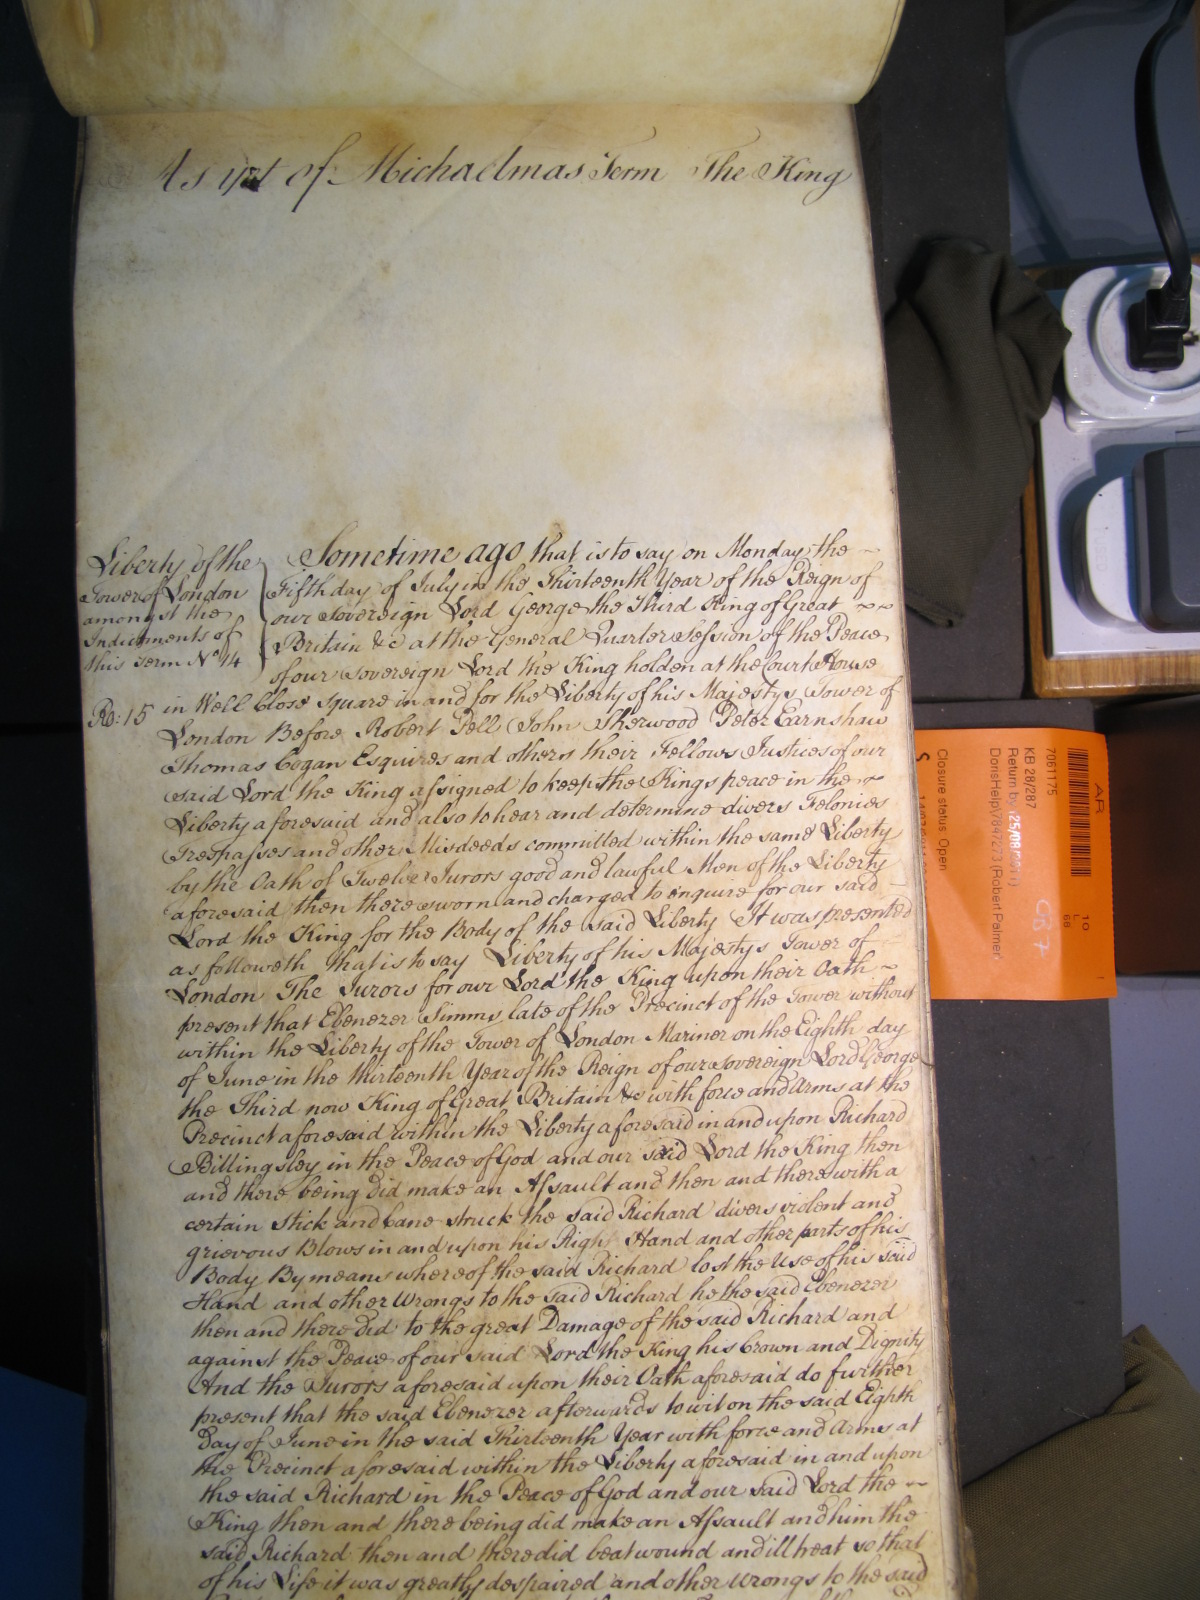 As yet of Michaelmas Term The King
Liberty of the
Tower of London
amongst the
Indictments of
this Term No. 14
Ro: 15
Sometime ago that is to say on Monday the
Fifth day of July in the Thirteenth Year of the Reign of
our Sovereign Lord George the Third King of Great
Britain &c at the General Quarter Session of the Peace
of our Sovereign Lord the King holden at the Court House
in Well Close Square in and for the Liberty of his Majestys Tower of
London Before Robert Pell John Sherwood Peter Earnshaw
Thomas Cogan Esquires and others their Fellows Justices of our
said Lord the King assigned to keep the Kings peace in the
Liberty aforesaid and also to hear and determine divers Felonies
Trespasses and other Misdeeds committed within the same Liberty
by the Oath of Twelve Jurors good and lawful Men of the Liberty
aforesaid then there sworn and charged to enquire for our said
Lord the King for the Body of the said Liberty It was presented
as followeth that is to say Liberty of his Majestys Tower of
London The Jurors for our Lord the King upon their Oath
present that Ebenezer Simms late of the Precinct of the Tower without
within the Liberty of the Tower of London Mariner on the Eighth day
of June in the thirteenth Year of the Reign of our Sovereign Lord George
the Third now King of Great Britain &c with force and Arms at the
Precinct aforesaid within the Liberty aforesaid in and upon Richard
Billingsley in the Peace of God and our said Lord the King then
and there being did make an Assault and then and there with a
certain Stick and Cane struck the said Richard divers violent and
grievous Blows in and upon his Right Hand and other parts of his
Body By means whereof the said Richard lost the Use of his said
Hand and other Wrongs to the said Richard he the said Ebenezer
then and there did to the great Damage of the said Richard and
against the Peace of our said Lord the King his Crown and Dignity
And the Jurors aforesaid upon their Oath aforesaid do further
present that the said Ebenezer afterwards to wit on the said Eighth
Day of June in the said Thirteenth Year with force and Arms at
the Precinct aforesaid within the Liberty aforesaid in and upon
the said Richard in the Peace of God and our said Lord the
King then and there being did make an Assault and him the
said Richard then and there did beat wound and ill treat so that
of his Life it was greatly despaired and other Wrongs to the said
AR
7061175
KB 28/287
Return by
Closure status: Open